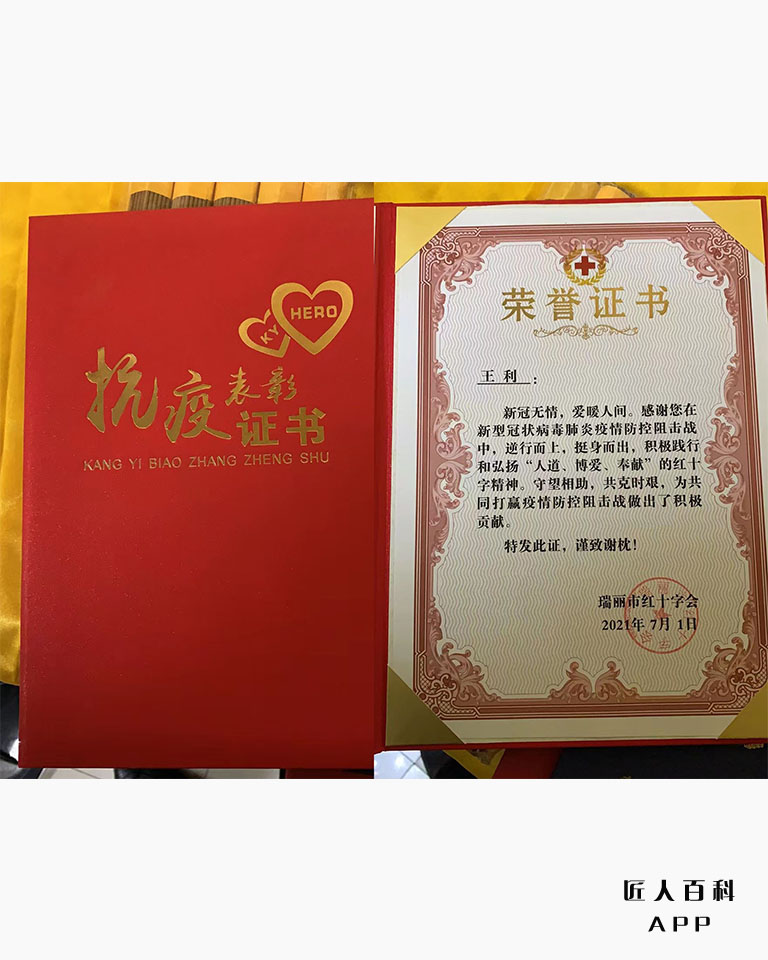 KY HERO
抗疫表彰
证书
KANG YI BIAO ZHANG ZHENG SHU
荣誉证书
王利：
新冠无情，爱暖人间。感谢您在
新型冠状病毒肺炎疫情防控阻击战
中，逆行而上，挺身而出，积极践行
和弘扬“人道、博爱、奉献”的红十
字精神。守望相助，共克时艰，为共
同打赢疫情防控阻击战做出了积极
贡献。
特发此证，谨致谢枕！
瑞丽市红十字会
2021年 7月 1日
匠人百科
APP